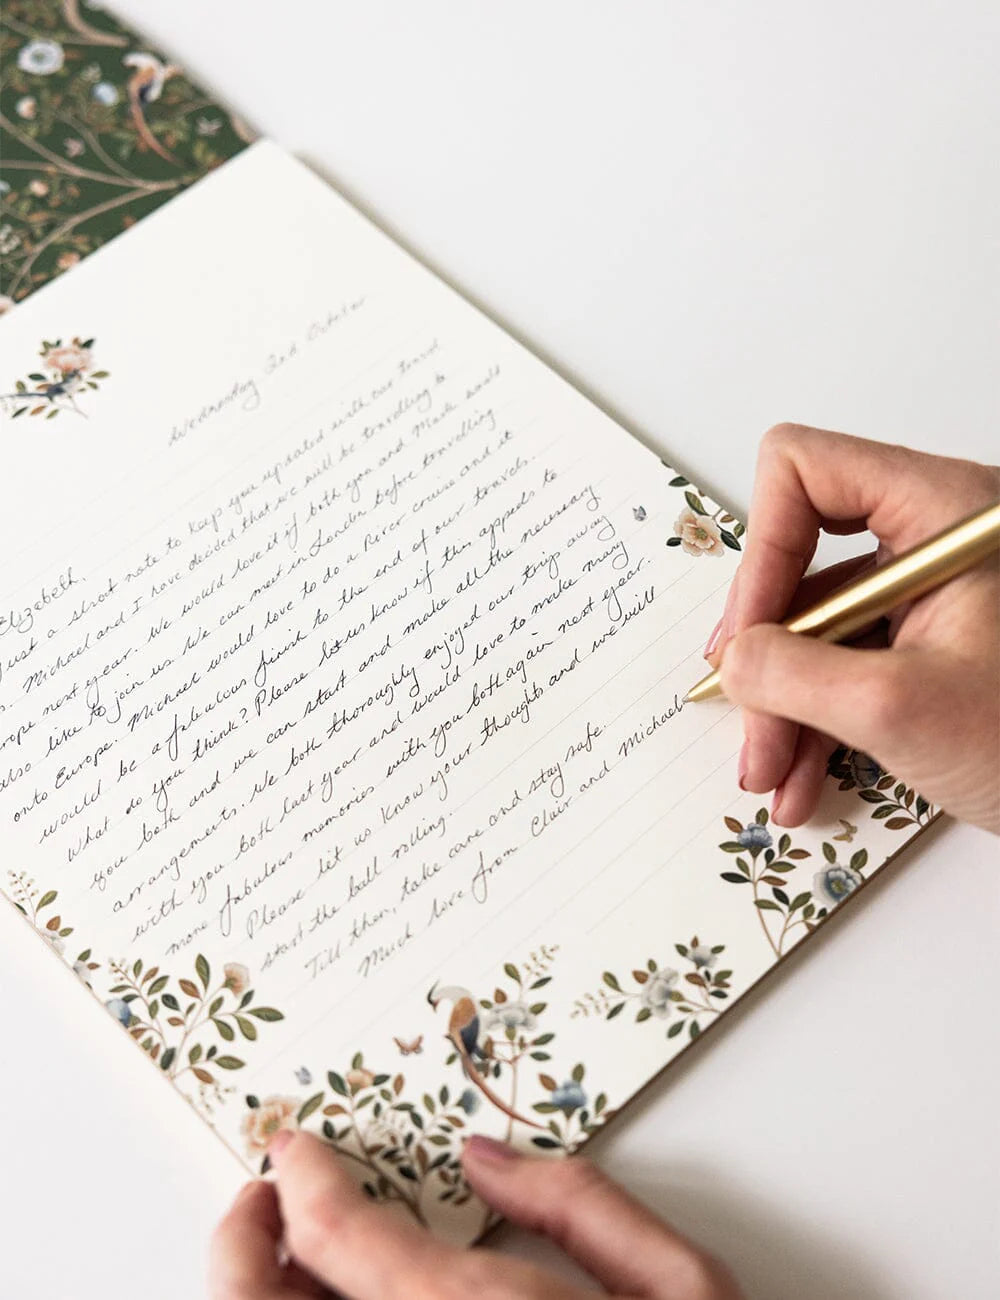 Wednesday 2nd October
Elizabeth,
Just a short note to keep you updated with our travel
s. Michael and I have decided that we will be travelling to
rope next year. We would love it if both you and Mark would
also like to join us. We can meet in London before travelling
onto Europe. Michael would love to do a River cruise and it
would be a fabulous finish to the end of our travels.
What do you think? Please let us know if this appeals to
you both and we can start and make all the necessary
arrangements. We both thoroughly enjoyed our trip away
with you both last year and would love to make many
more fabulous memories with you both again next year.
Please let us know your thoughts and we will
start the ball rolling.
Till then, take care and stay safe.
Much love from Clair and Michael